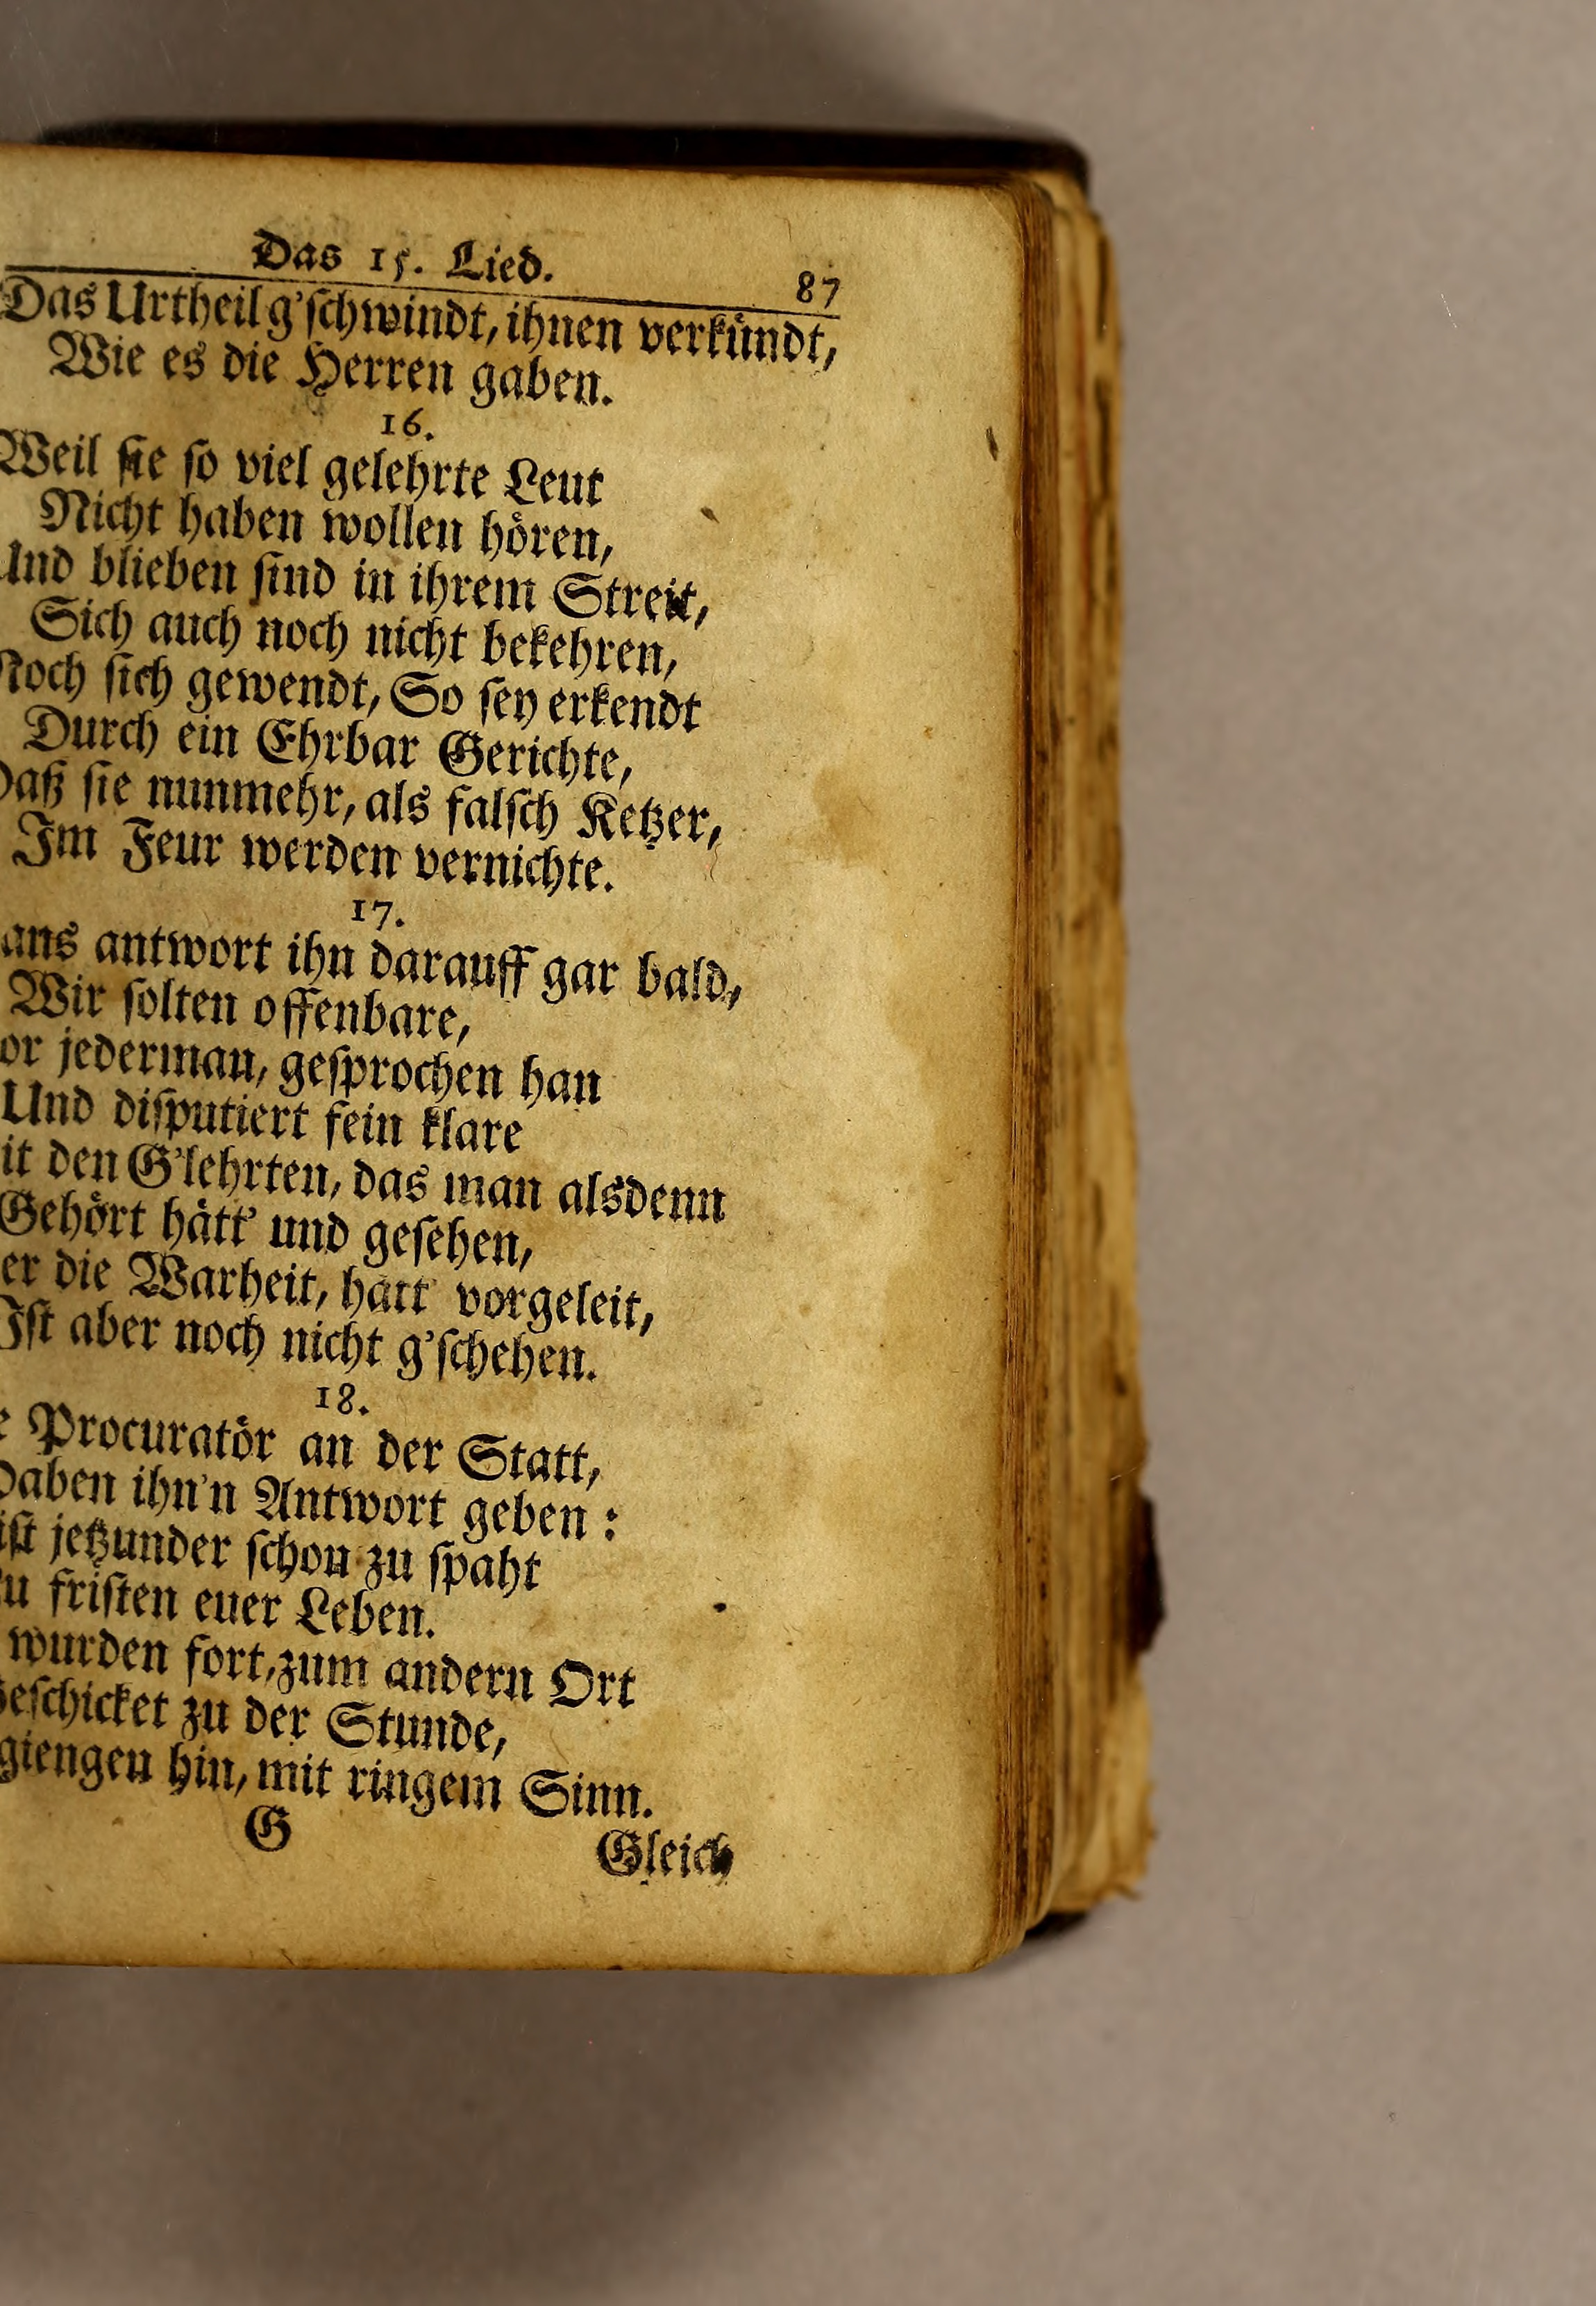 Das 15. Lied. 87
Das Urtheil g'schwindt, ihnen verkündt,
Wie es die Herren gaben.
16.
Weil sie so viel gelehrte Leut
Nicht haben wollen hören,
Und blieben sind in ihrem Streit,
Sich auch noch nicht bekehren,
Noch sich gewendt, So sey erkendt
Durch ein Ehrbar Gerichte,
Daß sie nunmehr, als falsch Ketzer,
Im Feur werden vernichte.
17.
ans antwort ihn darauff gar bald,
Wir solten offenbare,
or jederman, gesprochen han
Und disputiert fein klare
it den G'lehrten, das man alsdenn
Gehört hätt' und gesehen,
er die Warheit, hätt' vorgeleit,
Ist aber noch nicht g'schehen.
18.
Procuratör an der Statt,
Haben ihn'n Antwort geben:
ist jetzunder schon zu spaht
Zu fristen euer Leben.
wurden fort, zum andern Ort
Geschicket zu der Stunde,
giengen hin, mit ringem Sinn.
G
Gleich